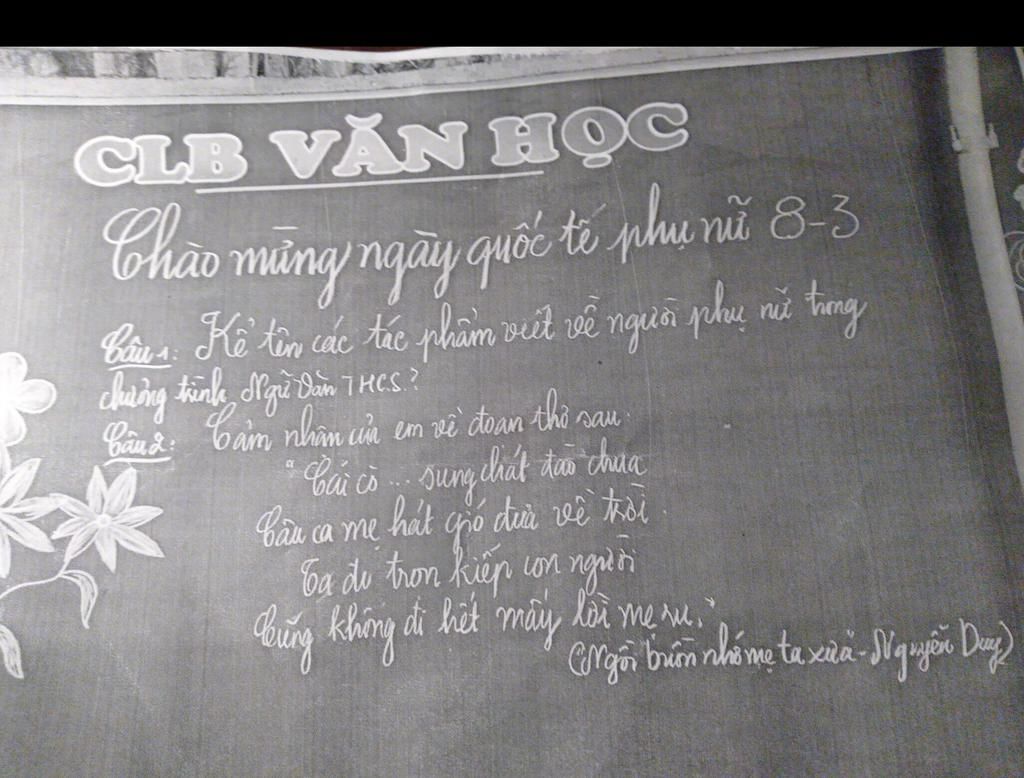 CLB VĂN HỌC
Chào mừng ngày quốc tế phụ nữ 8-3
Câu 1: Kể tên các tác phẩm viết về người phụ nữ trong
chương trình Ngữ Văn THCS?
Câu 2: Cảm nhận của em về đoạn thơ sau:
"Cái cò ... sung chát đào chua
Câu ca mẹ hát gió đưa về trời
Ta đi trọn kiếp con người
Cũng không đi hết mấy lời mẹ ru."
(Ngồi buồn nhớ mẹ ta xưa - Nguyễn Duy)